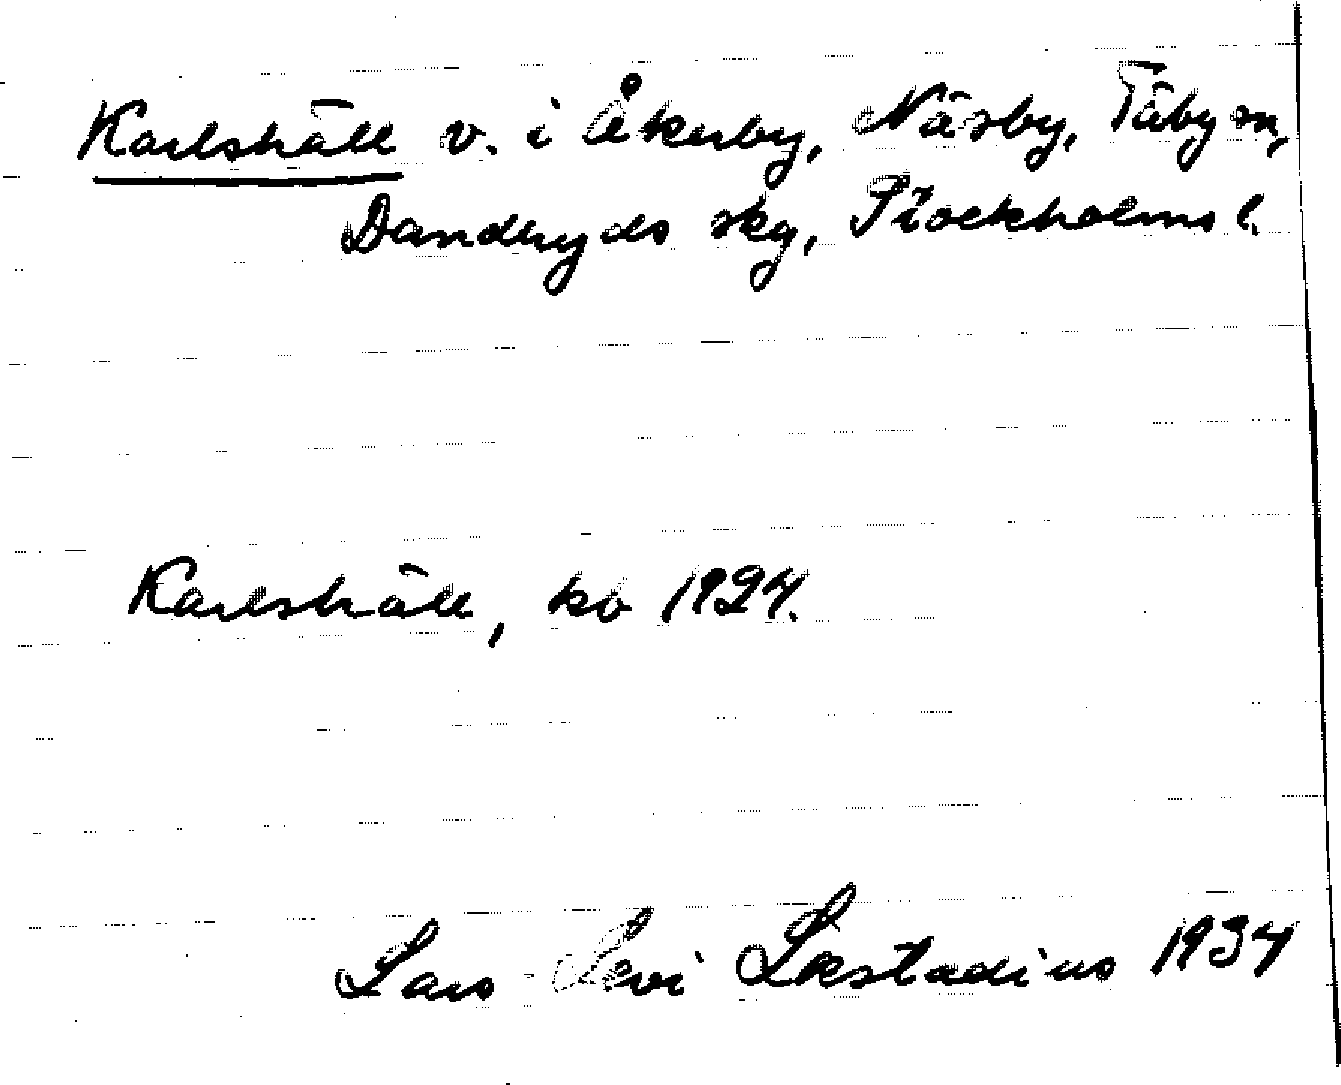 Karlshäll v. i Åkerby, Näsby, Täby sn,
Danderyds skg, Stockholms l.
Karlshäll, kb 1924.
Lars-Levi Læstadius 1934